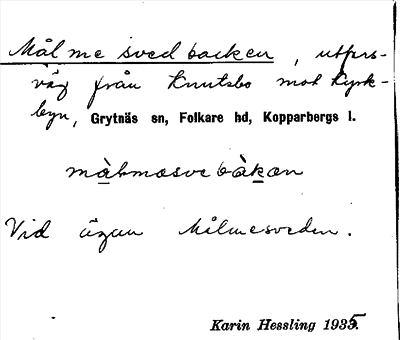 Målmesvedbacken, utfors-
väg från Knutsbo mot Kyrk-
byn, Grytnäs sn, Folkare hd, Kopparbergs l.
màlməsvebàkən
Vid ägan Målmesveden.
Karin Hessling 1935.